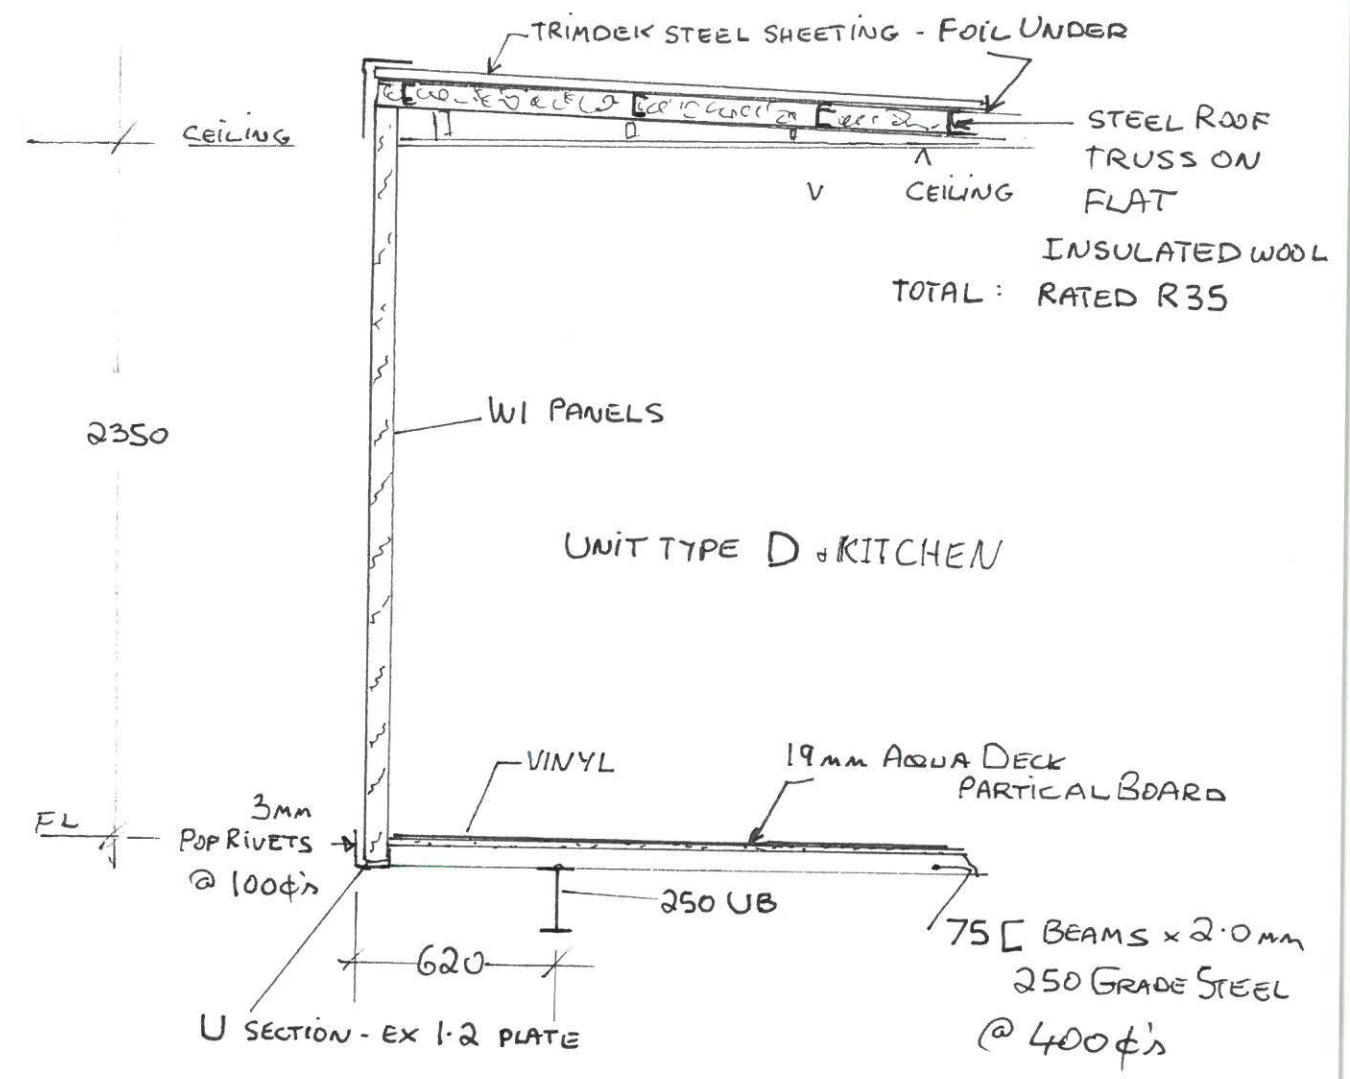 TRIMDEK STEEL SHEETING - FOIL UNDER
CEILING
STEEL ROOF
TRUSS ON
FLAT
V
CEILING
INSULATED WOOL
TOTAL: RATED R35
2350
W1 PANELS
UNIT TYPE D & KITCHEN
VINYL
19mm AQUA DECK
PARTICAL BOARD
FL
3mm
POP RIVETS
@ 100¢'s
250 UB
75 [ BEAMS x 2.0mm
620
250 GRADE STEEL
U SECTION - EX 1.2 PLATE
@ 400¢'s